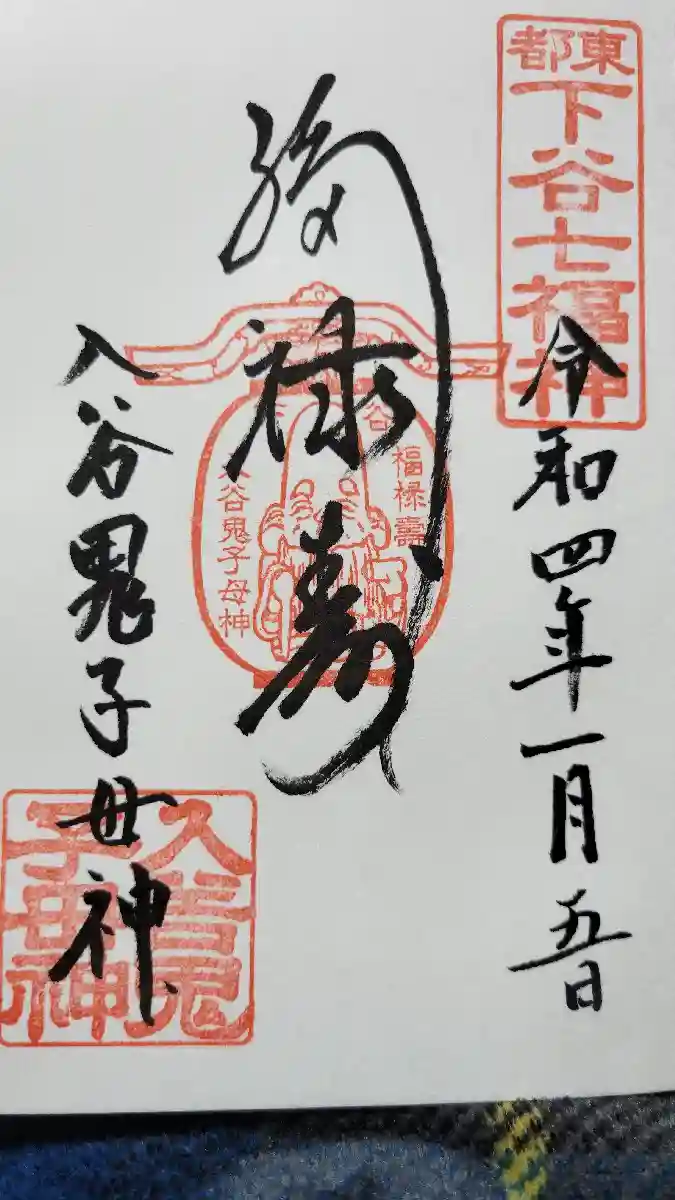 東都
下谷七福神
令和四年一月五日
福禄寿
谷
福禄壽
入谷鬼子母神
入谷鬼子母神
入谷鬼子母神